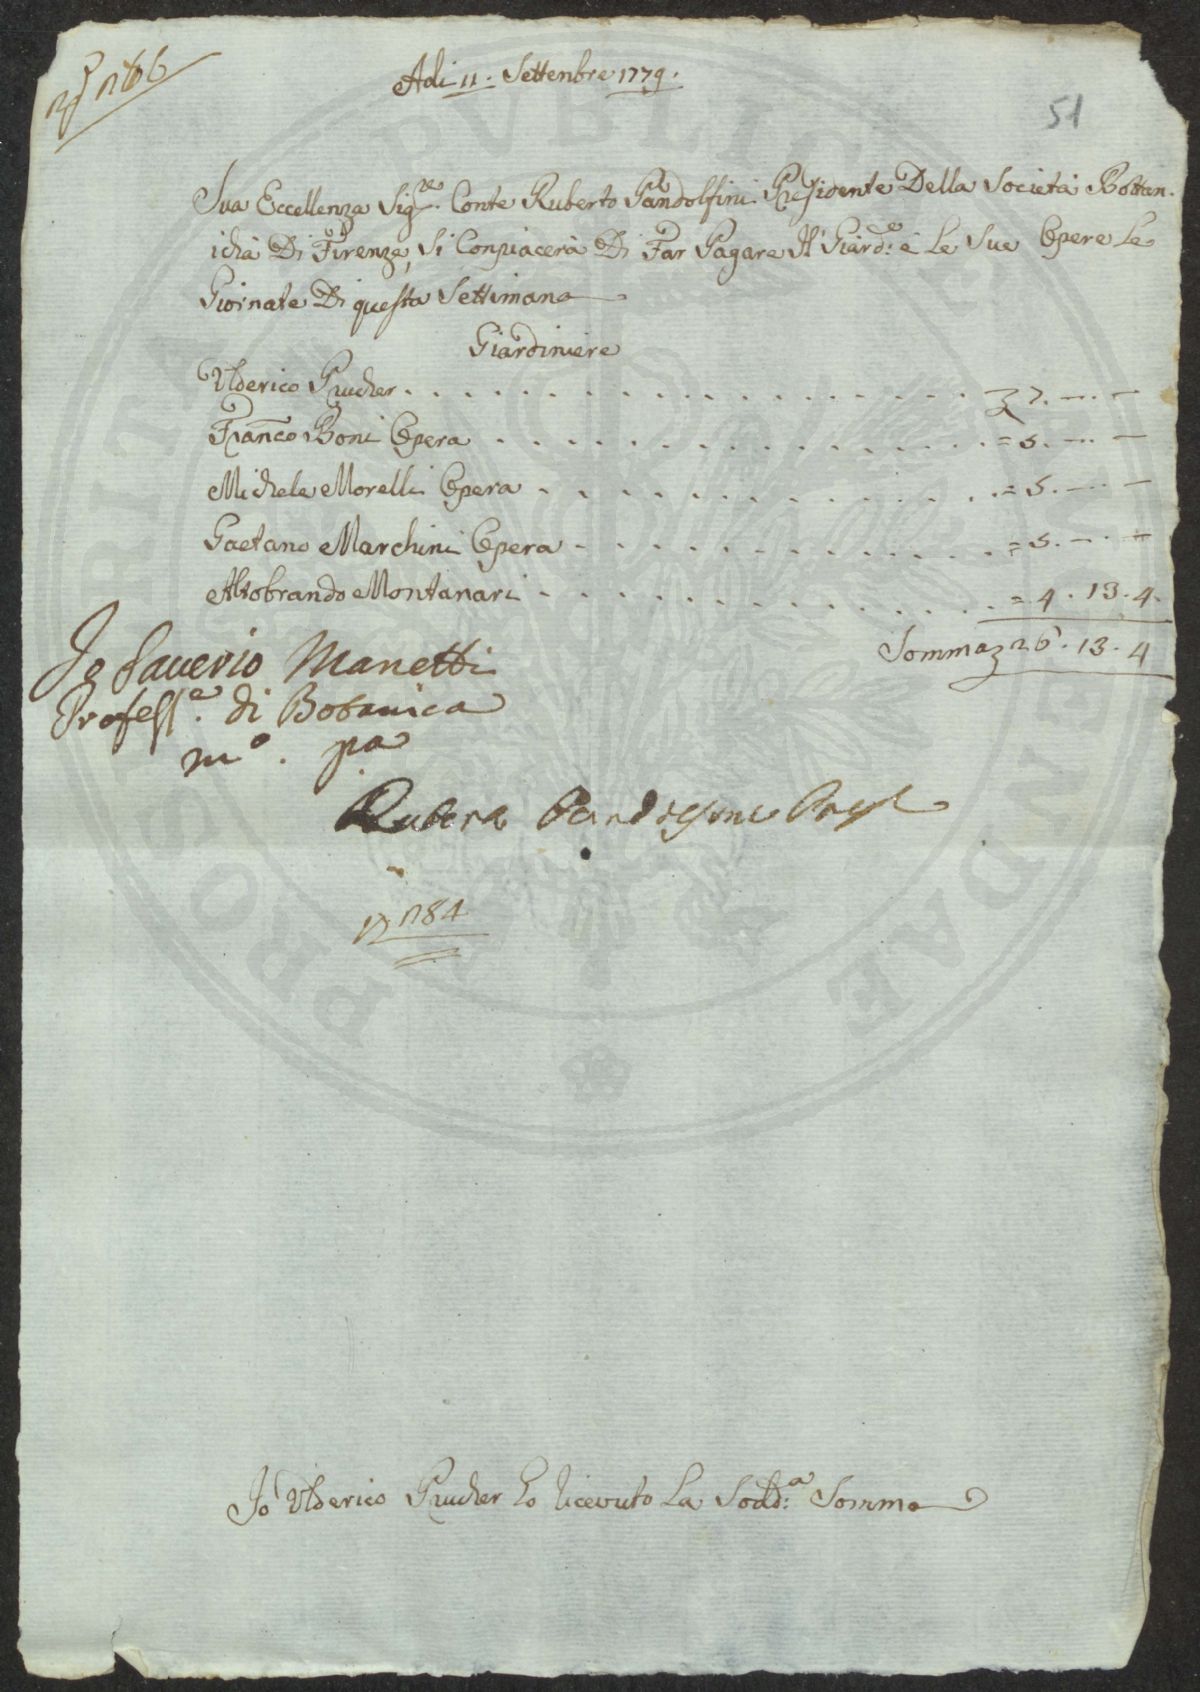 N° 186
Adi 11. Settenbre 1779.
51
Sua Eccellenza Sig.re Conte Ruberto Pandolfini Presidente Della Societá Bottan-
icha Di Firenze, Si Conpiacerà Di Far Pagare Al Giard.e é Le Sue Opere Le
Giornate Di questa Settimana
Giardiniere
Ulderico Prucher . . . . . . . . . . . . . . . . . 7. — . —
Fran.co Boni Opera . . . . . . . . . . . . . . . = 5. — . —
Michele Morelli Opera . . . . . . . . . . . . . = 5. — . —
Gaetano Marchini Opera . . . . . . . . . . . . = 5. — . —
Altobrando Montanari . . . . . . . . . . . . . = 4. 13. 4.
Somma 26. 13. 4
Io Saverio Manetti
Profess.e di Botanica
m.o pa
Ruberto Pandolfini Pres
N 184
Io Ulderico Prucher ho ricevuto La Sodd.a Somma
PROSPERITATI PVBLICAE AVGENDAE